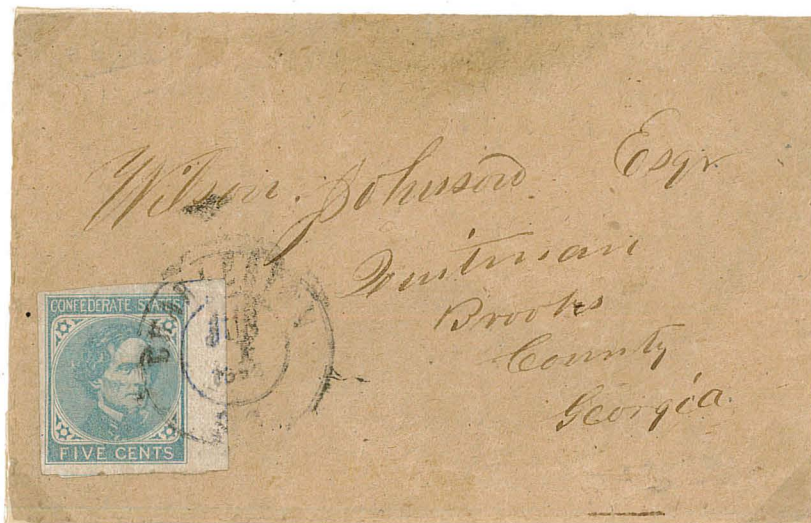 Wilson Johnson Esqr
Quitman
Brooks
County
Georgia
CONFEDERATE STATES
FIVE CENTS